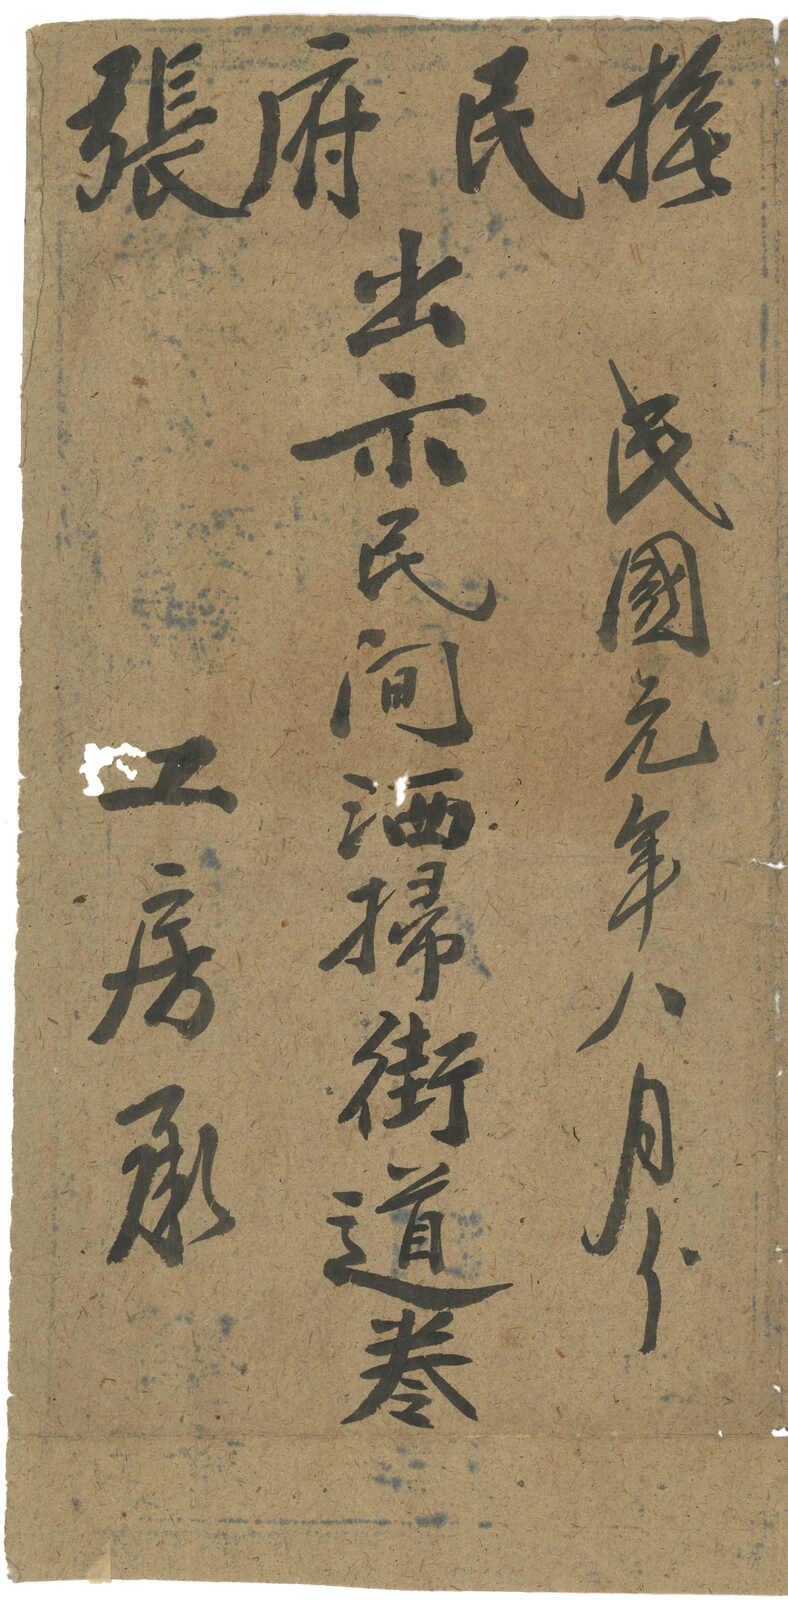 權民府張
民國元年八月分
出示民間洒掃街道卷
工房承